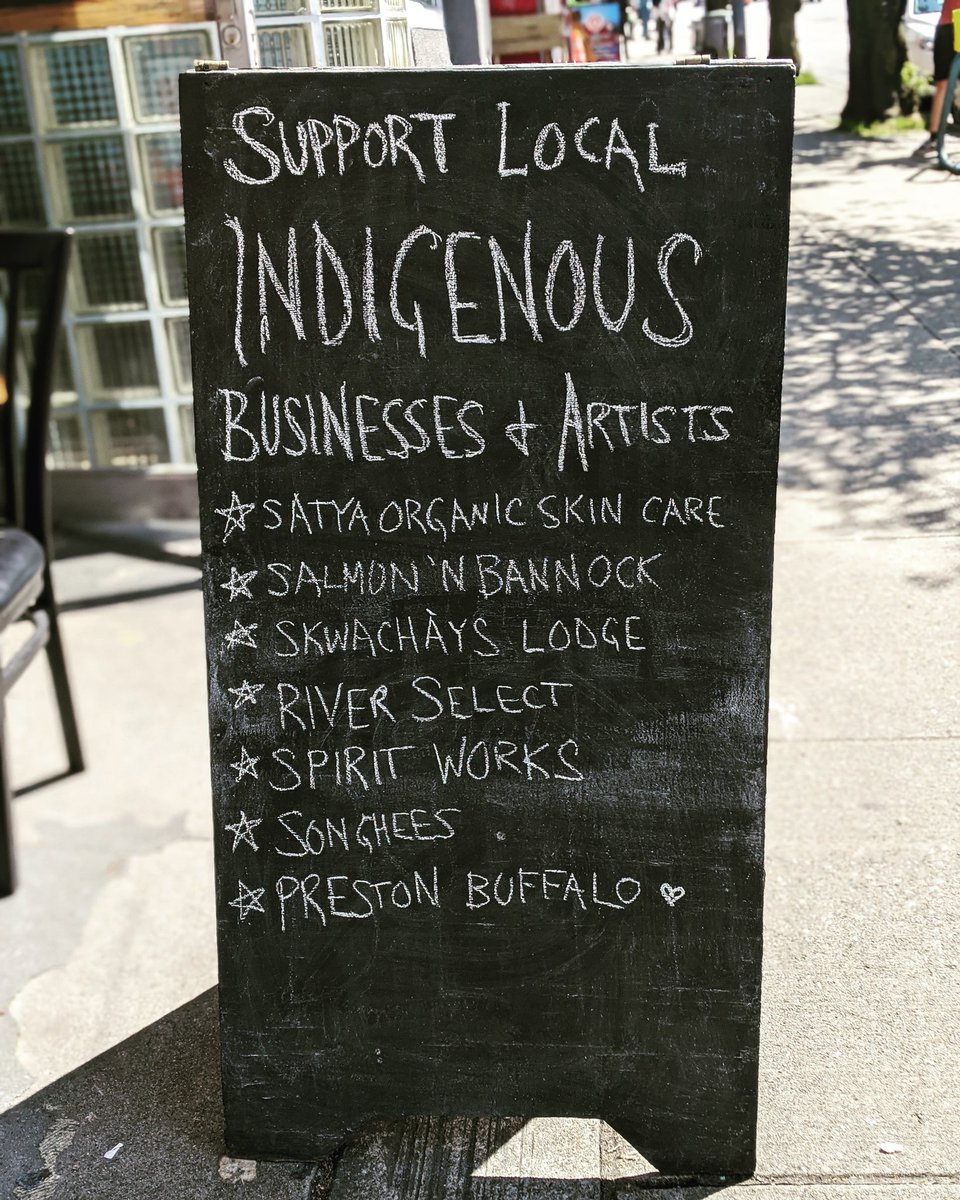 SUPPORT LOCAL
INDIGENOUS
BUSINESSES + ARTISTS
☆ SATYA ORGANIC SKIN CARE
☆ SALMON 'N BANNOCK
☆ SKWACHÀYS LODGE
☆ RIVER SELECT
☆ SPIRIT WORKS
☆ SONGHEES
☆ PRESTON BUFFALO ♡